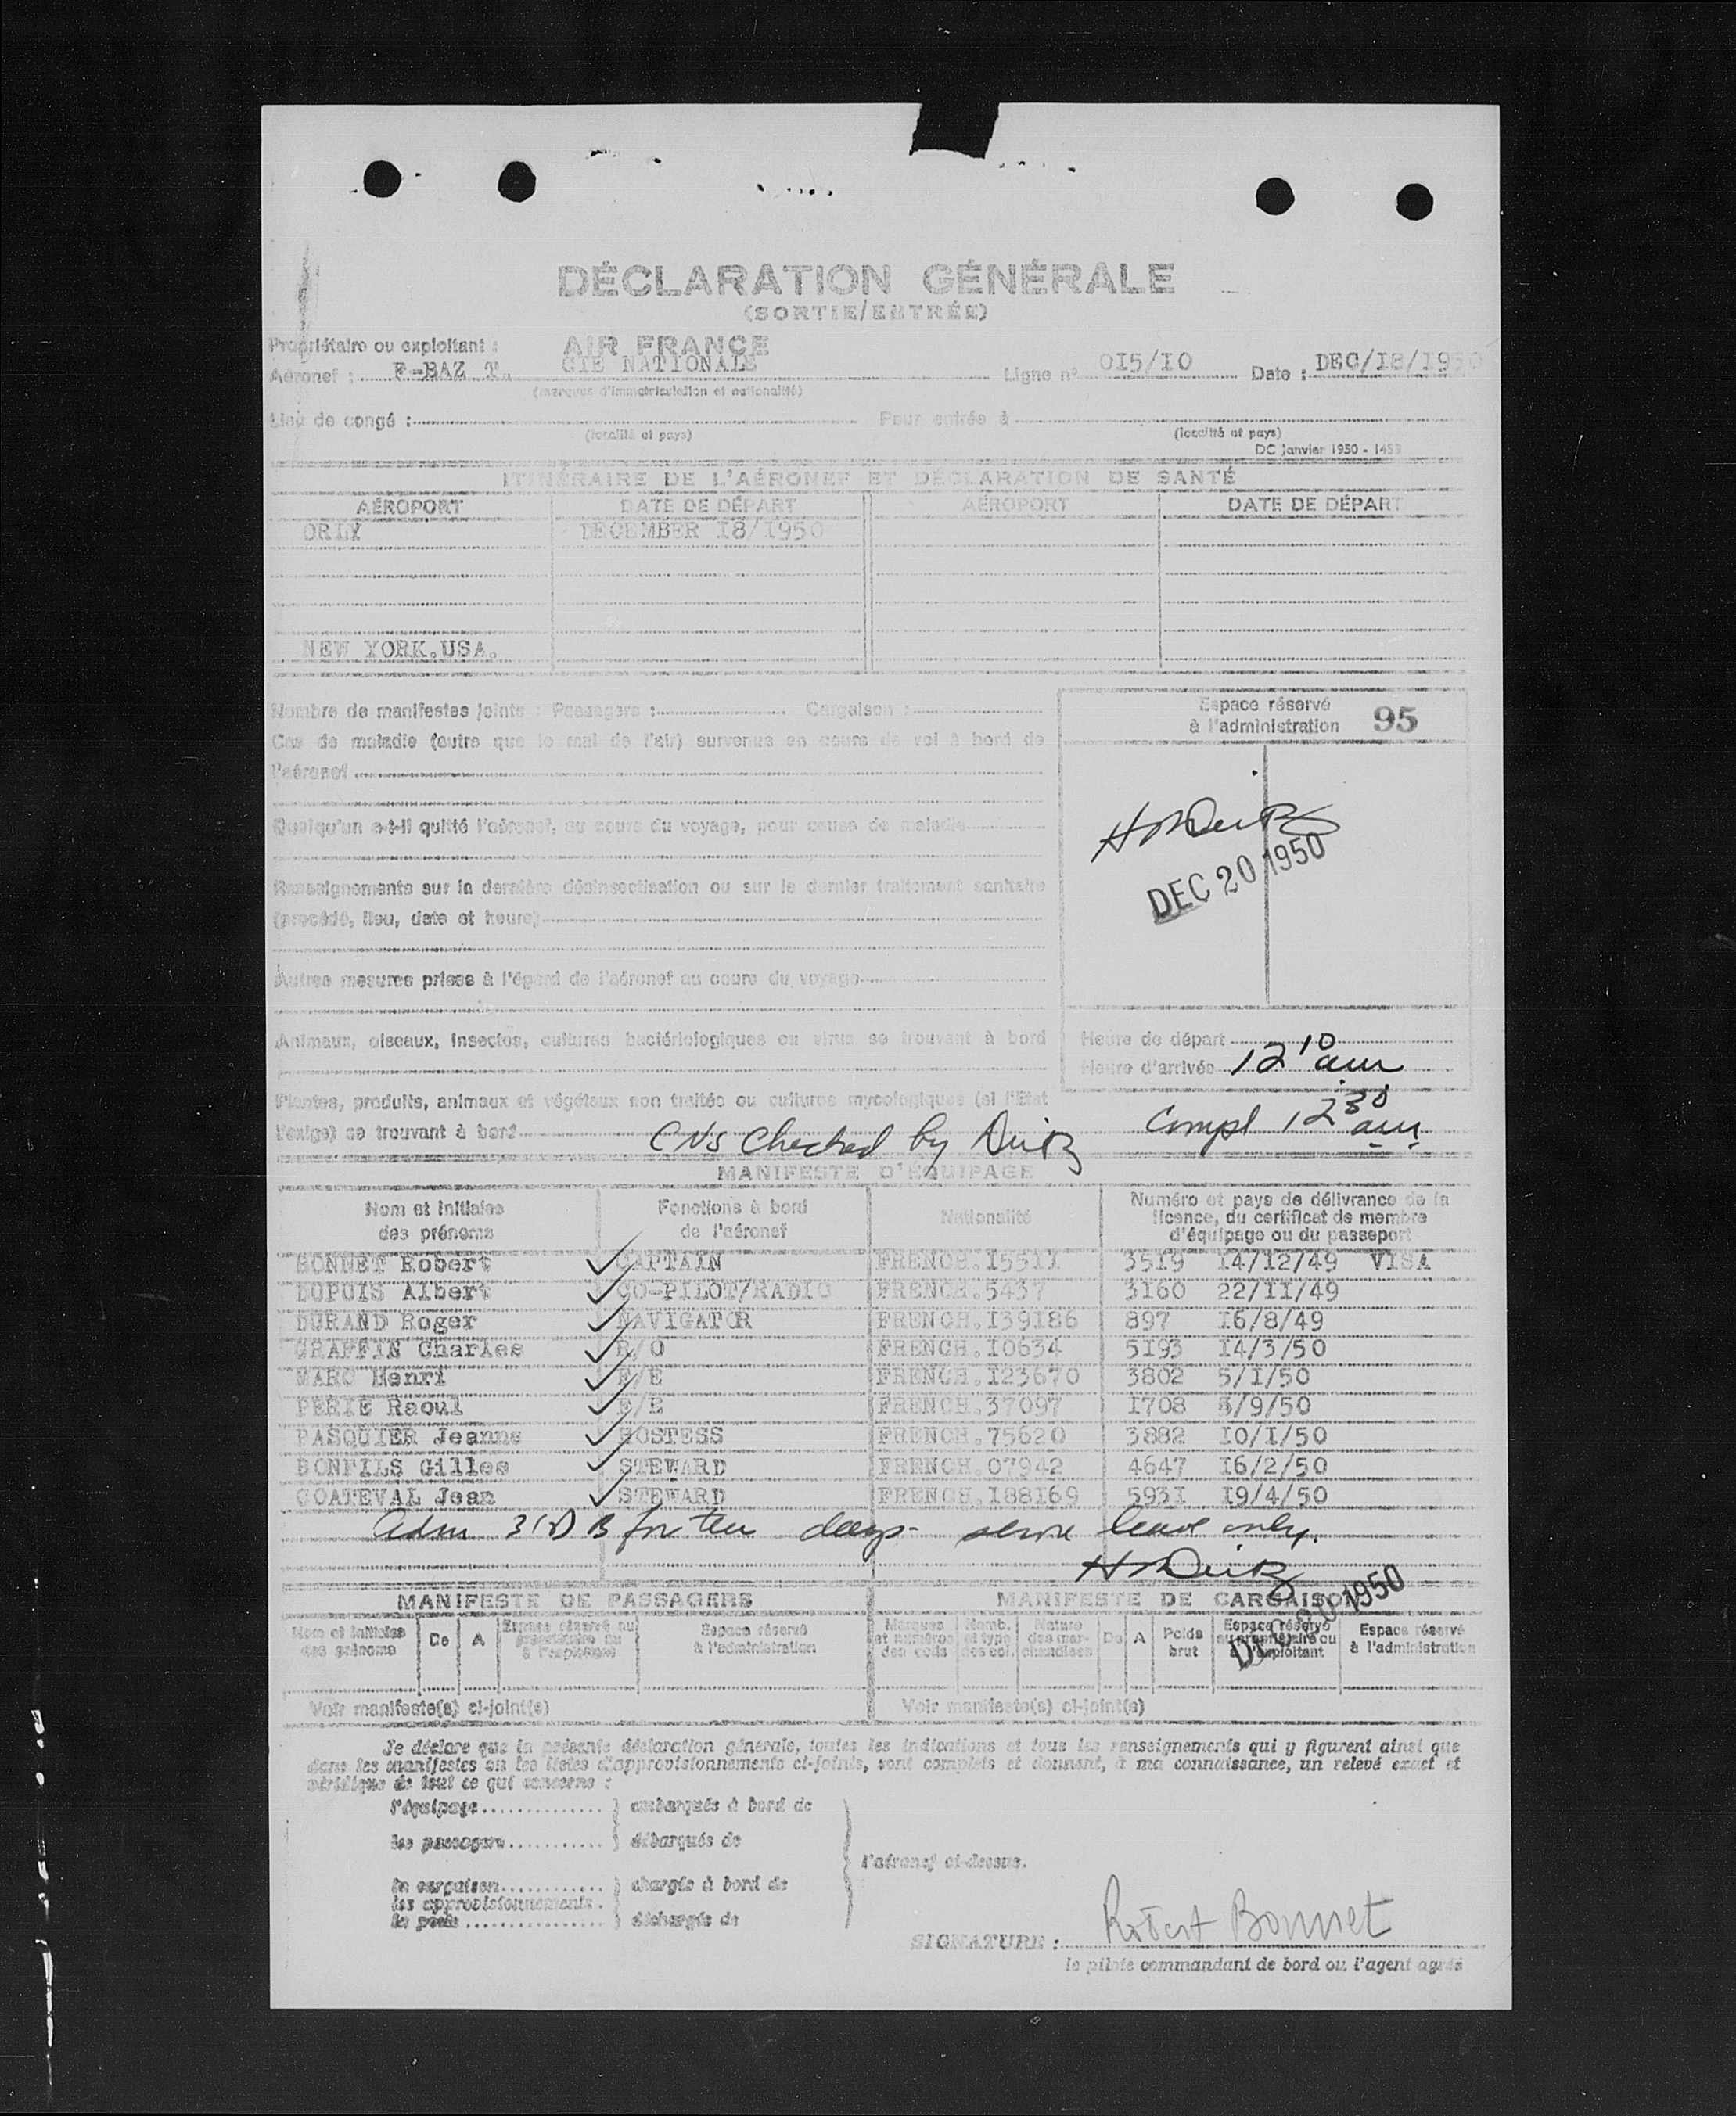 DÉCLARATION GÉNÉRALE
(SORTIE/ENTRÉE)
Propriétaire ou exploitant : AIR FRANCE
Aéronef : F-BAZ T. CIE NATIONALE Ligne n° 015/10 Date : DEC/18/1950
(marques d'immatriculation et nationalité)
Lieu de congé : Pour entrée à
(localité et pays) (localité et pays)
DC Janvier 1950 - 1453
ITINÉRAIRE DE L'AÉRONEF ET DÉCLARATION DE SANTÉ
AÉROPORT DATE DE DÉPART AÉROPORT DATE DE DÉPART
ORLY DECEMBER 18/1950
NEW YORK.USA.
Nombre de manifestes joints : Passagers : Cargaison :
Espace réservé
à l'administration 95
Cas de maladie (autre que le mal de l'air) survenus en cours de vol à bord de
l'aéronef
Quelqu'un a-t-il quitté l'aéronef, au cours du voyage, pour cause de maladie
DEC 20 1950
Renseignements sur la dernière désinsectisation ou sur le dernier traitement sanitaire
(procédé, lieu, date et heure)
Autres mesures prises à l'égard de l'aéronef au cours du voyage
Animaux, oiseaux, insectes, cultures bactériologiques ou virus se trouvant à bord
Heure de départ
Heure d'arrivée 12 10 am
Plantes, produits, animaux et végétaux non traités ou cultures mycologiques (si l'Etat
l'exige) se trouvant à bord
Compl 12 30 am
checked by
MANIFESTE D'ÉQUIPAGE
Nom et initiales des prénoms Fonctions à bord de l'aéronef Nationalité Numéro et pays de délivrance de la licence, du certificat de membre d'équipage ou du passeport
BONNET Robert CAPTAIN FRENCH.15511 3519 14/12/49 VISA
DUPUIS Albert CO-PILOT/RADIO FRENCH.5437 3160 22/11/49
DURAND Roger NAVIGATOR FRENCH.139186 897 16/8/49
GRAFFIN Charles R/O FRENCH.10634 5193 14/3/50
MARC Henri F/E FRENCH.123670 3802 5/1/50
PERIE Raoul F/E FRENCH.37097 1708 /9/50
PASQUIER Jeanne HOSTESS FRENCH.75620 3882 10/1/50
BONFILS Gilles STEWARD FRENCH.07942 4647 16/2/50
COATEVAL Jean STEWARD FRENCH.188169 5931 19/4/50
Adm 3(5) B for ten days shore leave only.
1950
MANIFESTE DE PASSAGERS MANIFESTE DE CARGAISON
Nom et initiales des prénoms De A Espace réservé au propriétaire ou à l'exploitant Espace réservé à l'administration
Marques et numéros des colis Nomb. et type des col. Nature des marchandises De A Poids brut Espace réservé au propriétaire ou à l'exploitant Espace réservé à l'administration
Voir manifeste(s) ci-joint(s) Voir manifeste(s) ci-joint(s)
Je déclare que la présente déclaration générale, toutes les indications et tous les renseignements qui y figurent ainsi que
dans les manifestes ou les listes d'approvisionnements ci-joints, sont complets et donnent, à ma connaissance, un relevé exact et
véridique de tout ce qui concerne :
l'équipage } embarqués à bord de
les passagers } débarqués de
l'aéronef ci-dessus.
la cargaison } chargés à bord de
les approvisionnements
la poste } déchargés de
SIGNATURE : Robert Bonnet
le pilote commandant de bord ou l'agent agréé